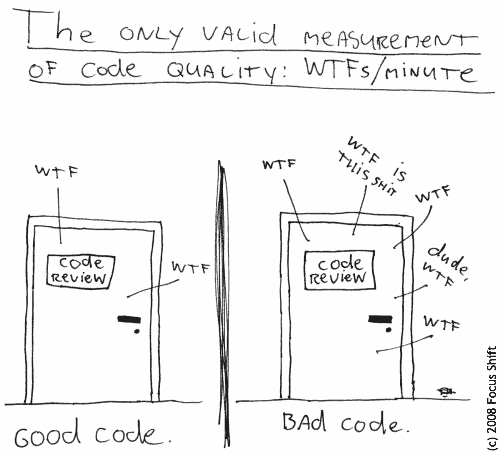 The ONLY VALID MEASUREMENT
OF Code QUALITY: WTFs/MINUTE
WTF
Code
REVIEW
WTF
GOOD CODE.
WTF
WTF is
THIS SHIT
WTF
Code
REVIEW
dude,
WTF
WTF
BAd Code.
(c) 2008 Focus Shift